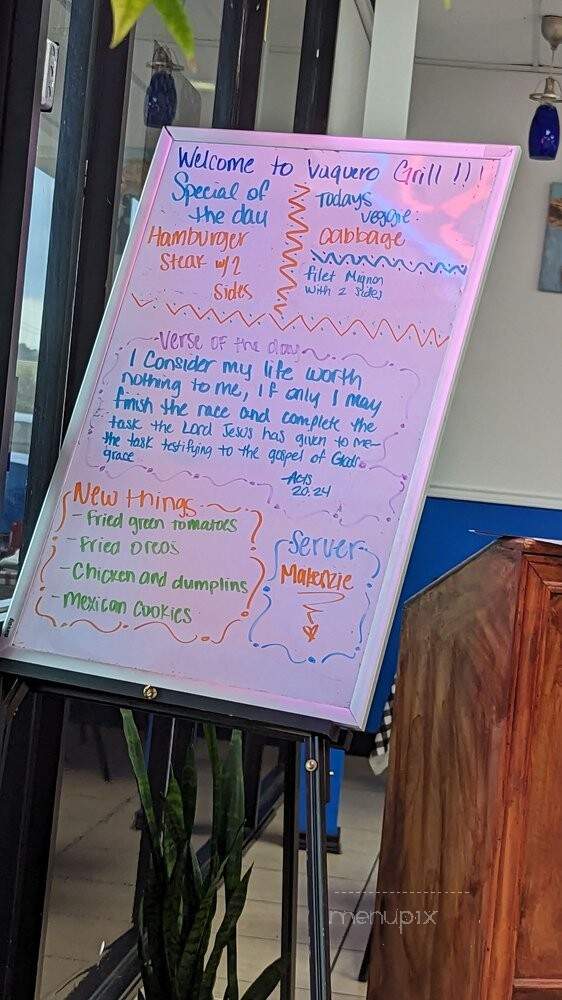 Welcome to Vaquero Grill !!!
Special of
the day
Hamburger
Steak w/2
Sides
Todays
veggie:
Cabbage
filet Mignon
with 2 sides
Verse of the day
I Consider my life worth
nothing to me, if only I may
finish the race and complete the
task the Lord Jesus has given to me-
the task testifying to the gospel of Gods
grace
-Acts
20:24
New things
-Fried green tomatoes
-Fried Oreos
-Chicken and dumplins
-Mexican Cookies
Server
Makenzie
menupix